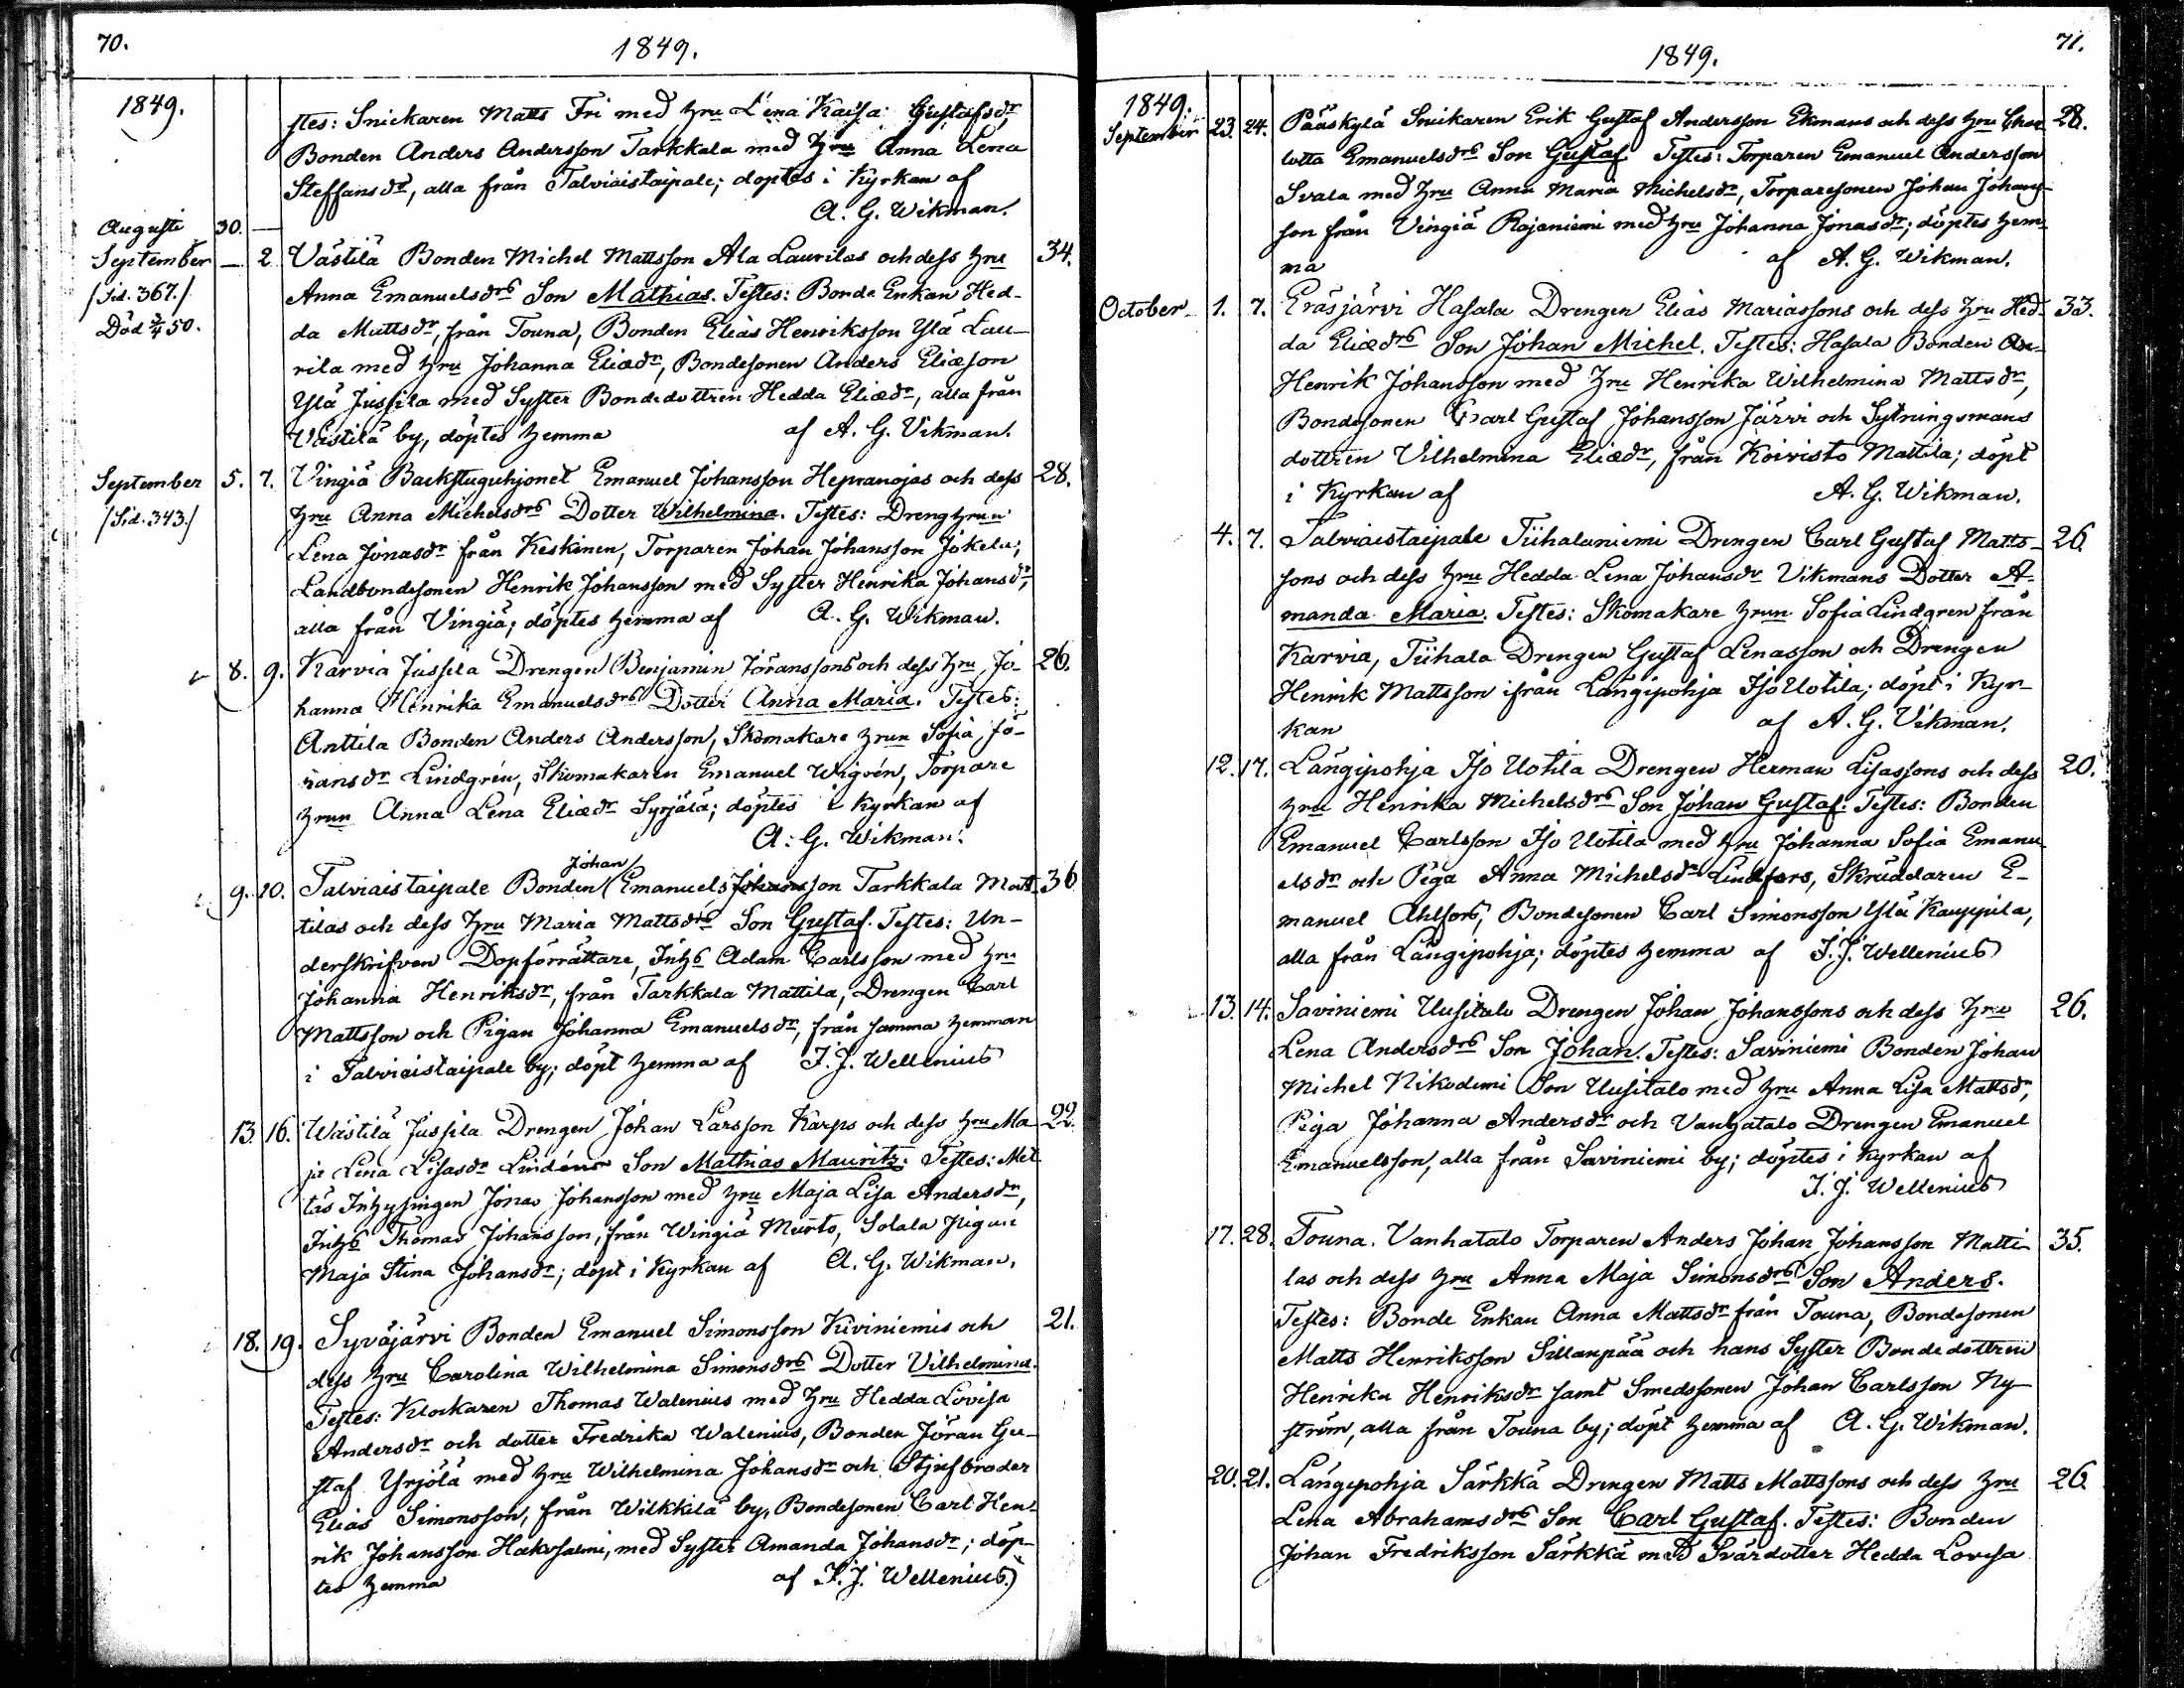 70.
1849.
1849.
stes: Snickaren Matts Fri med Hru Lena Kaisa Gustafsdr
Bonden Anders Andersson Tarkkala med Hru Anna Lena
Steffansdr, alla från Talviaistaipale; döptes i Kyrkan af
A. G. Wikman.
Augusti 30. —
September — 2 Västilä Bonden Michel Mattsson Ala Laurilas och dess Hru 34.
/Sid. 367./ Anna Emanuelsdrs Son Mathias. Testes: Bonde Enkan Hed-
Död 3/4 50. da Mattsdr, från Touna, Bonden Elias Henriksson Ylä Lau-
rila med Hru Johanna Eliædr, Bondesonen Anders Eliæson
Ylä Jussila med Syster Bondedottren Hedda Eliædr, alla från
Västilä by, döptes hemma af A. G. Vikman.
September 5. 7. Vingiä Backstuguhjonet Emanuel Johansson Hepranojas och dess 28.
/Sid. 343./ Hru Anna Michelsdrs Dotter Wilhelmina. Testes: Dreng hrun
Lena Jonasdr från Keskinen, Torparen Johan Johansson Jokela,
Landbondesonen Henrik Johansson med Syster Henrika Johansdr,
alla från Vingiä; döptes hemma af A. G. Wikman.
8. 9. Karvia Jussila Drengen Benjamin Jöranssons och dess Hru Jo- 26.
hanna Henrika Emanuelsdrs Dotter Anna Maria. Testes:
Anttila Bonden Anders Andersson, Skomakare hrun Sofia Jö-
ransdr Lindgrén, Skomakaren Emanuel Wigrén, Torpare
hrun Anna Lena Eliædr Syrjälä; döptes i Kyrkan af
A. G. Wikman.
Johan
9. 10. Talviaistaipale Bonden (Emanuels Johansson Tarkkala Matt- 36
tilas och dess Hru Maria Mattsdrs Son Gustaf. Testes: Un-
derskrifven Dopförrättare, Inhs Adam Carlsson med Hru
Johanna Henriksdr, från Tarkkala Mattila, Drengen Carl
Mattsson och Pigan Johanna Emanuelsdr, från samma hemman
i Talviaistaipale by; döpt hemma af F. J. Wellenius
13. 16. Wästilä Jussila Drengen Johan Larsson Karps och dess Hru Ma- 22.
ja Lena Lisasdr Lindéns Son Mathias Mauritz. Testes: Met-
täs Inhysingen Jonas Johansson med Hru Maja Lisa Andersdr,
Inhs Thomas Johansson, från Wingiä Murto, Solala Pigan
Maja Stina Johansdr; döpt i Kyrkan af A. G. Wikman.
18. 19. Syväjärvi Bonden Emanuel Simonsson Kiviniemis och 21.
dess Hru Carolina Wilhelmina Simonsdrs Dotter Vilhelmina.
Testes: Klockaren Thomas Walenius med Hru Hedda Lovisa
Andersdr och dotter Fredrika Walenius, Bonden Jöran Gu-
staf Yrjölä med Hru Wilhelmina Johansdr och Stjufbroder
Elias Simonsson, från Wilkkilä by, Bondesonen Carl Hen-
rik Johansson Hakosalmi, med Syster Amanda Johansdr; döp-
tes hemma af F. J. Wellenius
71.
1849.
1849.
September 23. 24. Pääskylä Snickaren Erik Gustaf Andersson Ekmans och dess Hru Char- 28.
lotta Emanuelsdrs Son Gustaf. Testes: Torparen Emanuel Andersson
Svala med Hru Anna Maria Michelsdr, Torparesonen Johan Johans-
son från Vingiä Rajaniemi med Hru Johanna Jonasdr; döptes hem-
ma af A. G. Wikman.
October 1. 7. Eräsjärvi Hasala Drengen Elias Mariassons och dess Hru Hed- 33.
da Eliædrs Son Johan Michel. Testes: Hasala Bonden
Henrik Johansson med Hru Henrika Wilhelmina Mattsdr,
Bondesonen Carl Gustaf Johansson Järvi och Sytningsmans
dottren Vilhelmina Eliædr, från Koivisto Mattila; döpt
i Kyrkan af A. G. Wikman.
4. 7. Talviaistaipale Tiihalaniemi Drengen Carl Gustaf Matts- 26.
sons och dess Hru Hedda Lena Johansdr Vikmans Dotter A-
manda Maria. Testes: Skomakare hrun Sofia Lindgren från
Karvia, Tiihala Drengen Gustaf Lenasson och Drengen
Henrik Mattsson ifrån Längipohja Iso Uotila; döpt i Kyr-
kan af A. G. Vikman.
12. 17. Längipohja Iso Uotila Drengen Herman Lisassons och dess 20.
Hru Henrika Michelsdrs Son Johan Gustaf. Testes: Bonden
Emanuel Carlsson Iso Uotila med Hru Johanna Sofia Emanu-
elsdr och Piga Anna Michelsdr Lindfors, Skräddaren E-
manuel Ahlfors, Bondesonen Carl Simonsson Ylä Kauppila,
alla från Längipohja; döptes hemma af F. J. Wellenius
13. 14. Saviniemi Uusitalo Drengen Johan Johanssons och dess Hru 26.
Lena Andersdrs Son Johan. Testes: Saviniemi Bonden Johan
Michel Nikodemi Son Uusitalo med Hru Anna Lisa Mattsdr,
Piga Johanna Andersdr och Vanhatalo Drengen Emanuel
Emanuelsson, alla från Saviniemi by; döptes i Kyrkan af
F. J. Wellenius
17. 28. Touna. Vanhatalo Torparen Anders Johan Johansson Matti- 35.
las och dess Hru Anna Maja Simonsdrs Son Anders.
Testes: Bonde Enkan Anna Mattsdr från Touna, Bondesonen
Matts Henriksson Sillanpää och hans Syster Bondedottren
Henrika Henriksdr samt Smedssonen Johan Carlsson Ny-
ström, alla från Touna by; döpt hemma af A. G. Wikman.
20. 21. Längipohja Särkkä Drengen Matts Mattssons och dess Hru 26.
Lena Abrahamsdrs Son Carl Gustaf. Testes: Bonden
Johan Fredriksson Särkkä med Svärdotter Hedda Lovisa